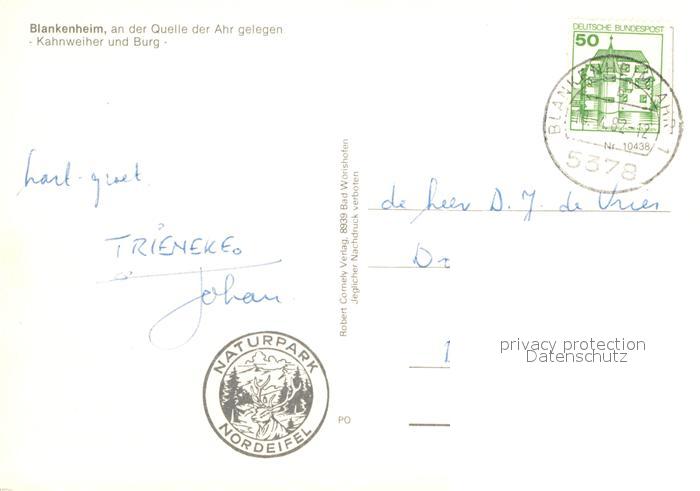 Blankenheim, an der Quelle der Ahr gelegen
- Kahnweiher und Burg -
DEUTSCHE BUNDESPOST
50
BLANKENHEIM, AHR 1
82-12
5378
Nr. 10438
hart. groet.
TRIENEKE.
Johan.
Robert Cornely Verlag, 8939 Bad Wörishofen
Jeglicher Nachdruck verboten
de heer D. J. de Vries
1
privacy protection
Datenschutz
NATURPARK
NORDEIFEL
PO